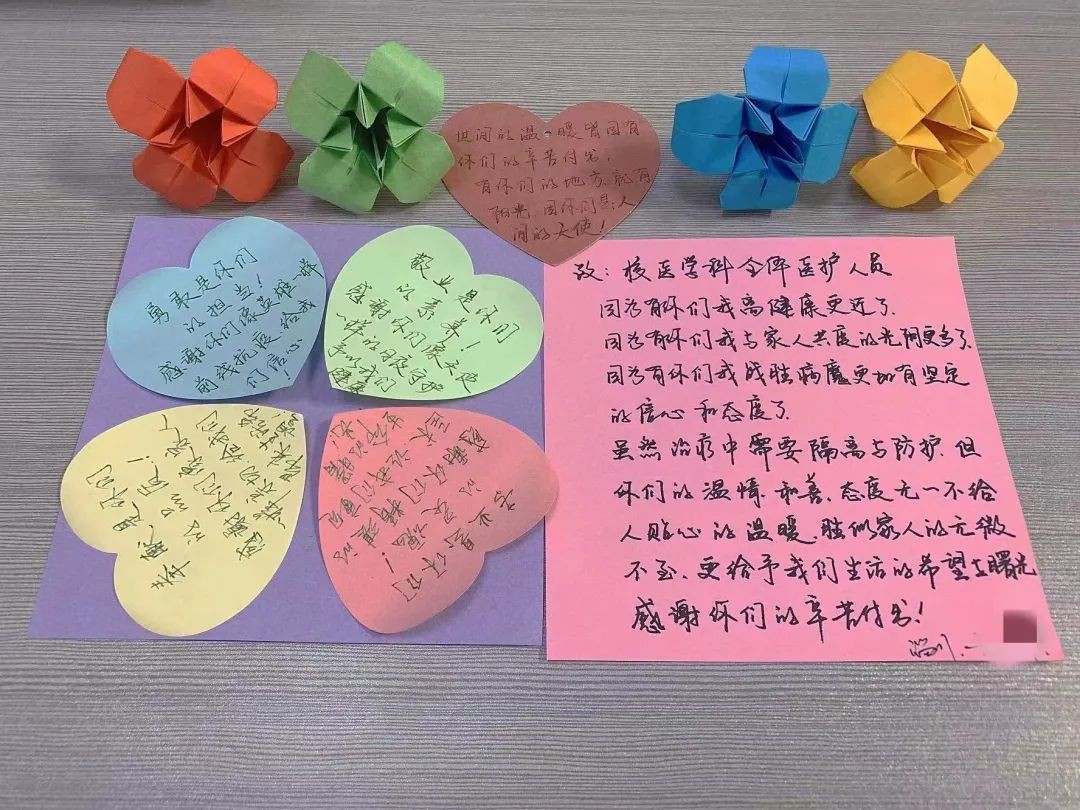 世间的温暖皆因有
你们的辛苦付出;
有你们的地方就有
阳光,因你们是人
间的天使!
勇敢是你们
的担当!
感谢你们像英雄一样
前线抗疫给我
们信心!
敬业是你们
的素养!
感谢你们像天使
一样的日夜守护
予以我们
健康
奉献是你们
的品质!
感谢你们
专业是你们
感谢你们精湛的
致:核医学科全体医护人员
因为有你们我离健康更近了.
因为有你们我与家人共度的光阴更多了.
因为有你们我战胜病魔更加有坚定
的信心和态度了.
虽然治疗中需要隔离与防护.但
你们的温情.和善.态度无一不给
人贴心的温暖.胜似家人的无微
不至.更给予我们生活的希望与曙光
感谢你们的辛苦付出!